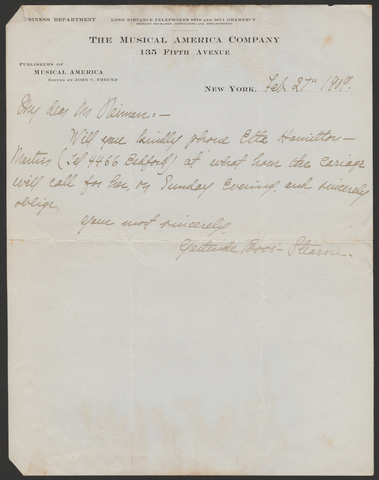 BUSINESS DEPARTMENT
LONG DISTANCE TELEPHONES 5070 AND 5071 GRAMERCY
PRIVATE EXCHANGE CONNECTING ALL DEPARTMENTS
THE MUSICAL AMERICA COMPANY
135 FIFTH AVENUE
PUBLISHERS OF
MUSICAL AMERICA
EDITED BY JOHN C. FREUND
NEW YORK, Feb. 27th 1909.
My dear Mr :-
Will you kindly phone Etta Hamilton-
(Tel 4466 Bedford) at what hour the cariage
will call for her, on Sunday Evening, and sincerely
oblige.
Your most sincerely,
Gertrude Stearne.